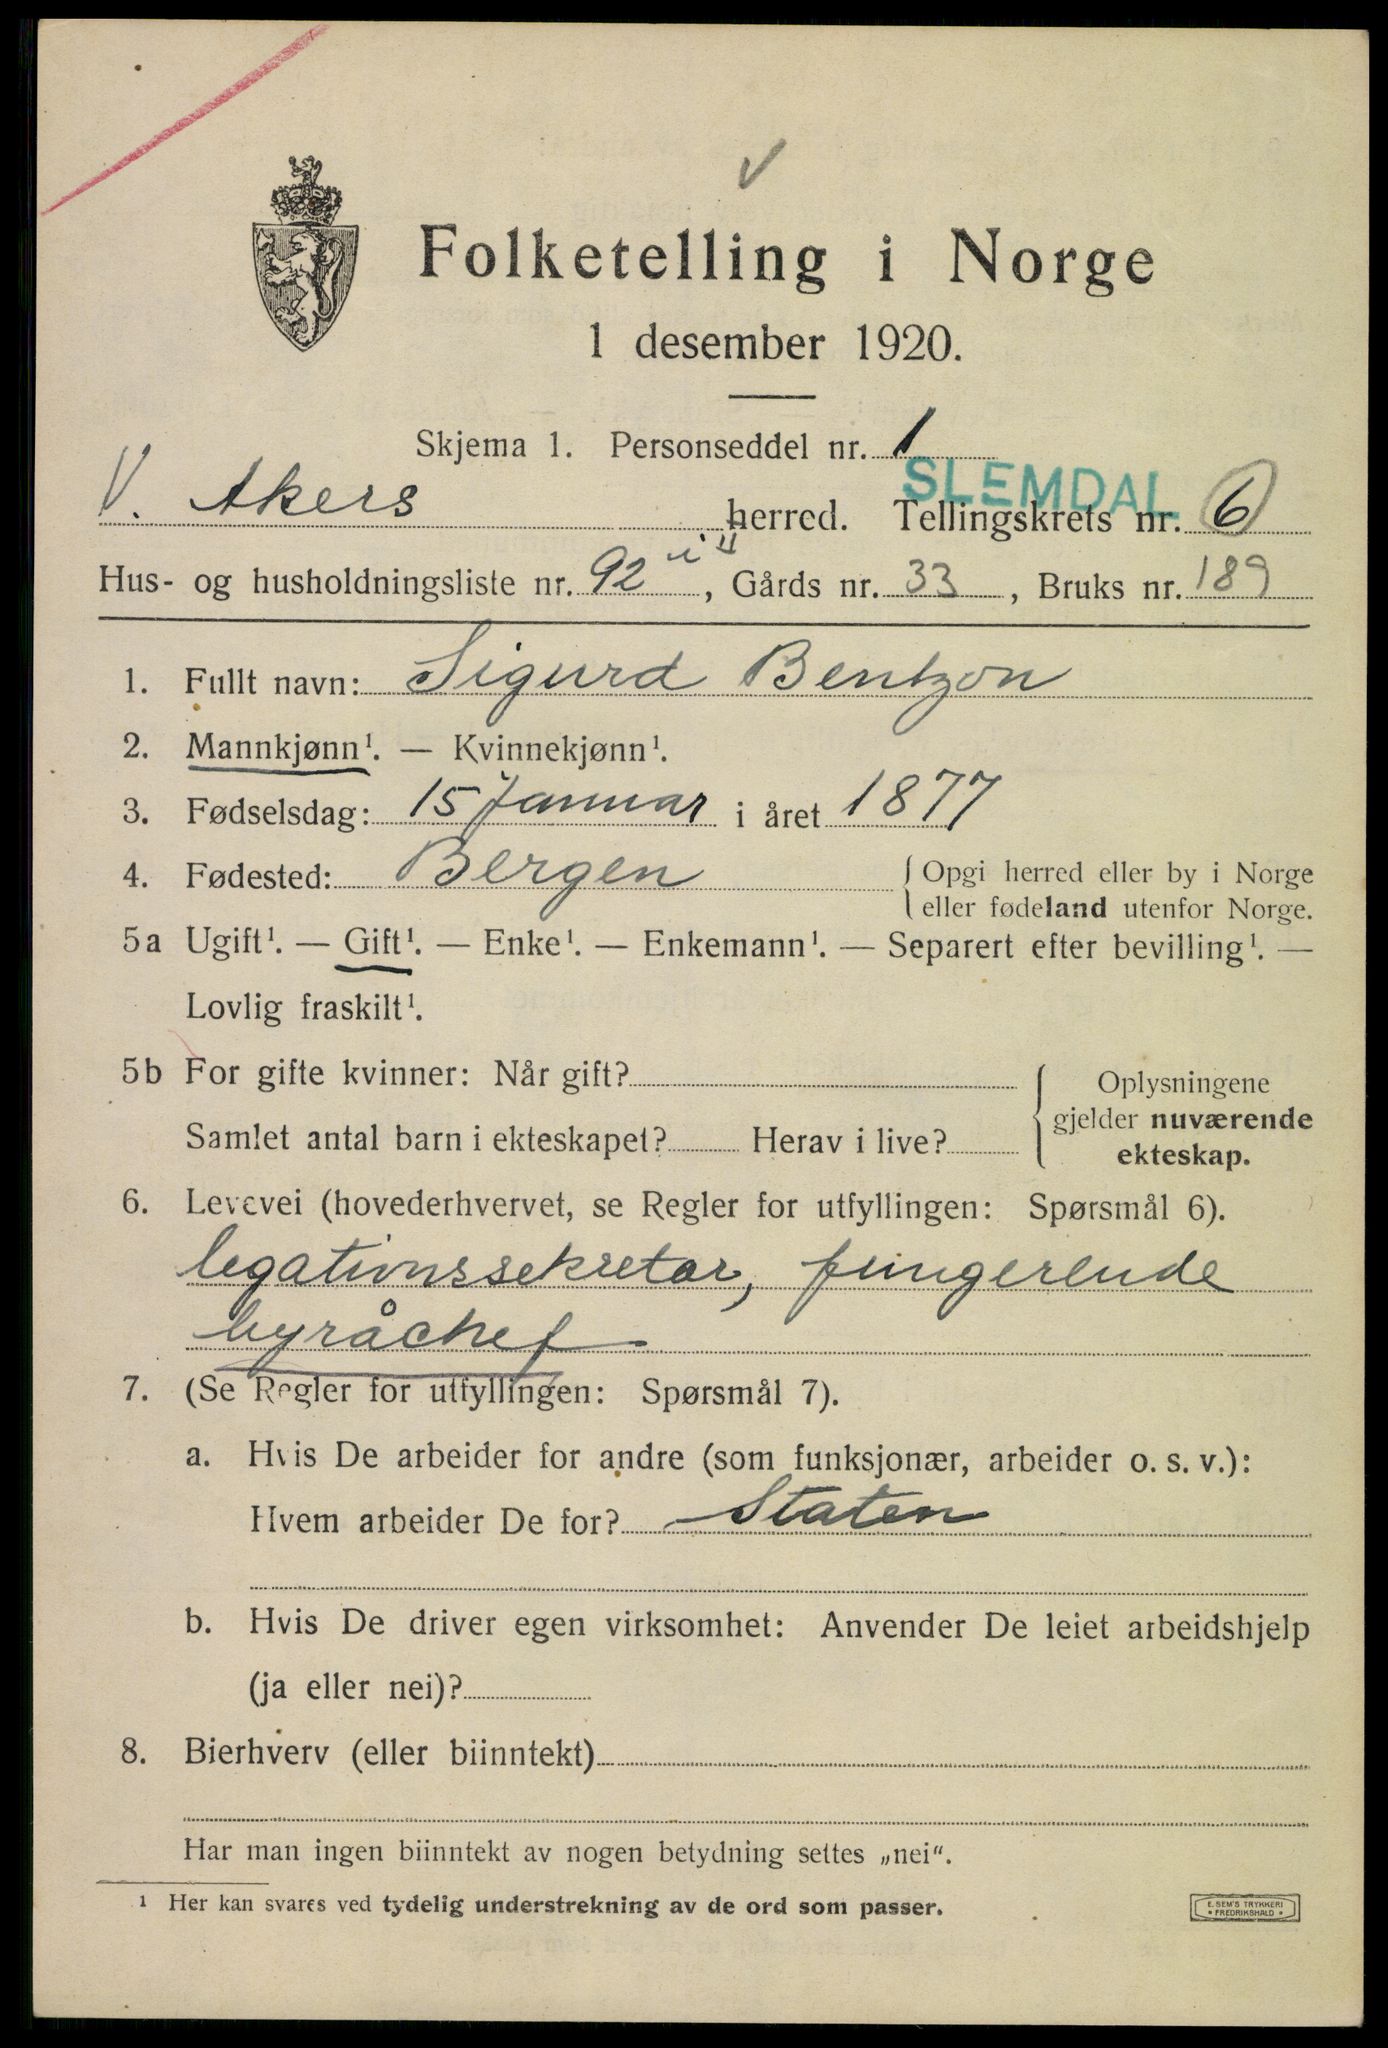 V
Folketelling i Norge
1 desember 1920.
Skjema 1. Personseddel nr. 1
SLEMDAL
V. Akers herred. Tellingskrets nr. 6
Hus- og husholdningsliste nr. 92, Gårds nr. 33, Bruks nr. 189
1. Fullt navn: Sigurd Bentzon
2. Mannkjønn¹. — Kvinnekjønn¹.
3. Fødselsdag: 15 Januar i året 1877
4. Fødested: Bergen { Opgi herred eller by i Norge
eller fødeland utenfor Norge.
5a Ugift¹. — Gift¹. — Enke¹. — Enkemann¹. — Separert efter bevilling¹. —
Lovlig fraskilt¹.
5b For gifte kvinner: Når gift?
Samlet antal barn i ekteskapet? Herav i live?
{ Oplysningene
gjelder nuværende
ekteskap.
6. Levevei (hovederhvervet, se Regler for utfyllingen: Spørsmål 6).
legationssekretær, fungerende
byråchef
7. (Se Regler for utfyllingen: Spørsmål 7).
a. Hvis De arbeider for andre (som funksjonær, arbeider o. s. v.):
Hvem arbeider De for? Staten
b. Hvis De driver egen virksomhet: Anvender De leiet arbeidshjelp
(ja eller nei)?
8. Bierhverv (eller biinntekt)
Har man ingen biinntekt av nogen betydning settes „nei“.
¹ Her kan svares ved tydelig understrekning av de ord som passer.
E. SEM'S TRYKKERI
• FREDRIKSHALD •